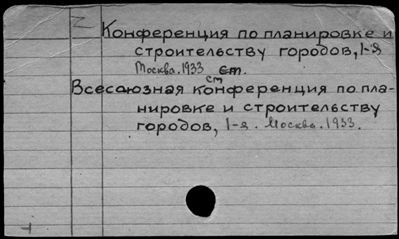 Конференция по планировке и
строительству городов, 1-я
Москва. 1933 ст.
ст
Всесоюзная конференция по пла-
нировке и строительству
городов, 1-я. Москва. 1933.